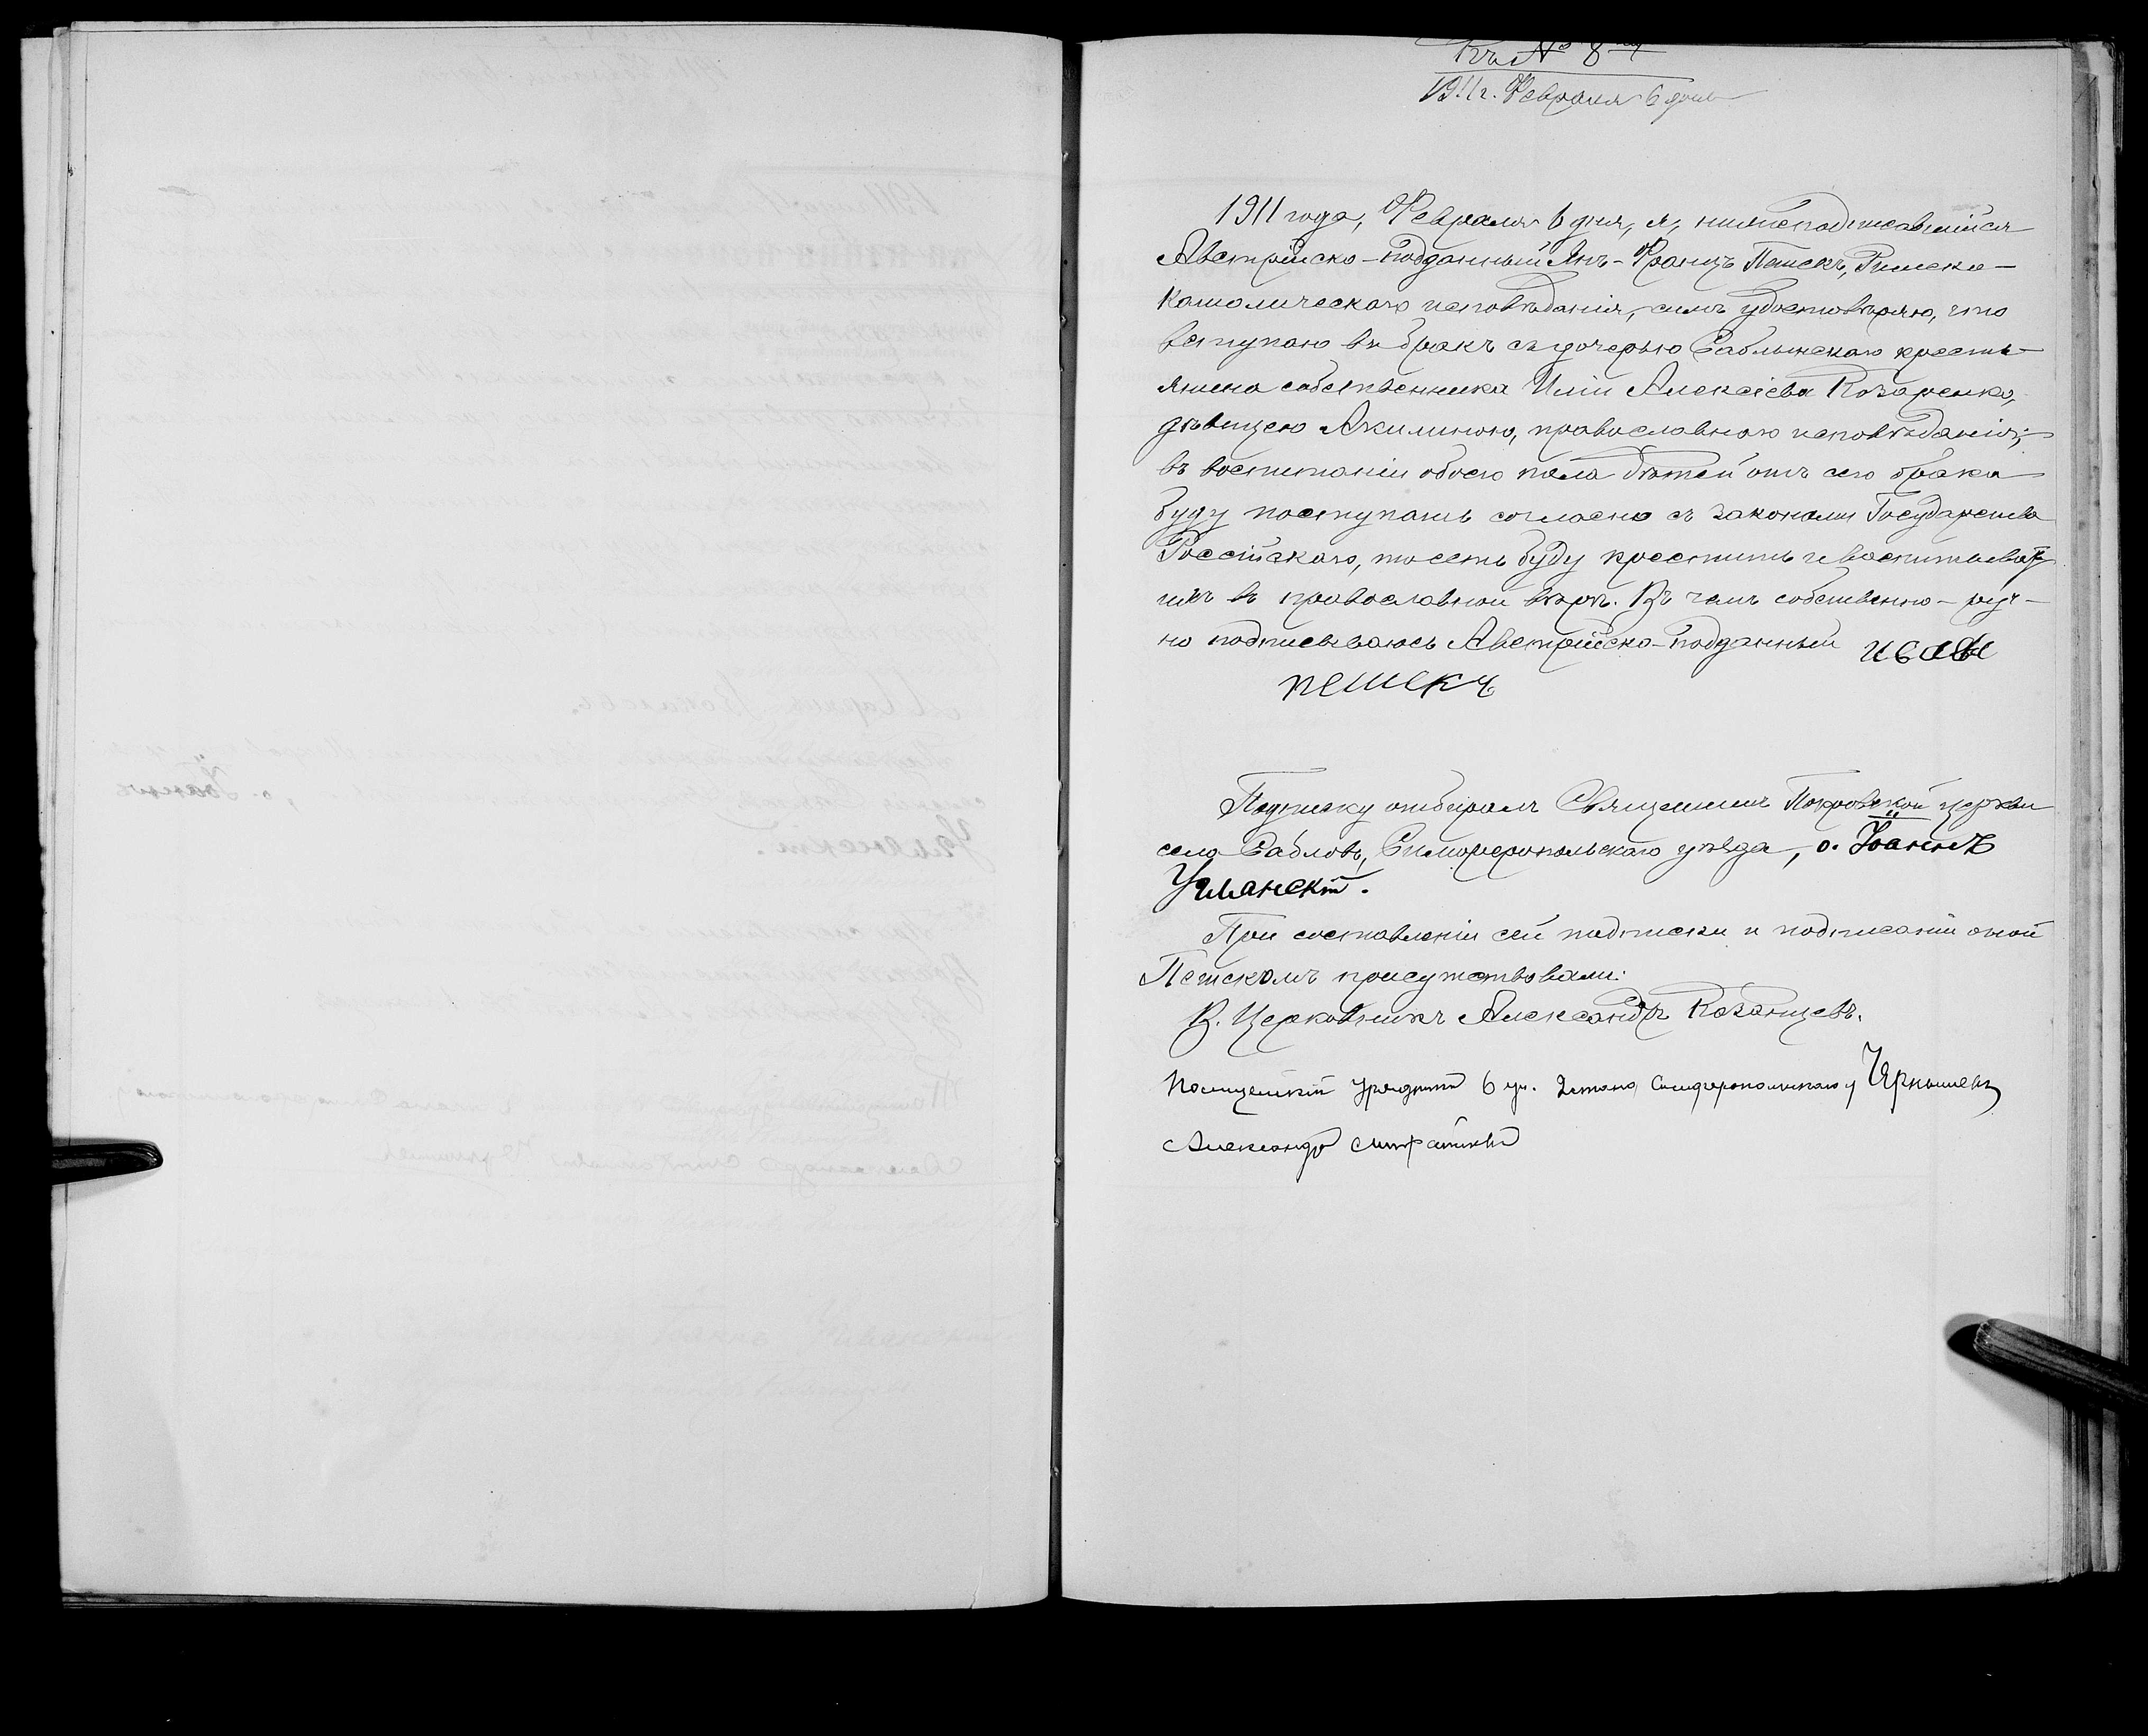 Къ № 8му
1911 г. Февраля 6 дня
1911 года, Февраля 6 дня, я, нижеподписавшійся
Австрійско-подданный Янъ-Францъ Пешекъ, Римско-
Католическаго исповѣданія, симъ удостовѣряю, что
вступаю въ бракъ съ дочерью Саблынскаго кресть-
янина собственника Иліи Алексіева Козаренко,
дѣвицею Акилиною, православнаго исповѣданія;
въ воспитаніи обоего пола дѣтей отъ сего брака
буду поступать согласно съ законами Государства
Россійскаго, то есть буду крестить и воспитывать
ихъ въ православной вѣрѣ. Въ чемъ собственно-руч-
но подписываюсь Австрійско-подданный
пешекъ
Подписку отбиралъ Священникъ Покровской церкви
села Сабловъ, Симферопольскаго уѣзда, о. Іоаннъ
Уманскій.
При составленіи сей подписки и подписаніи оной
Пешекомъ присутствовали:
В. Церковникъ Александръ Казанцевъ.
Полицейскій Урядникъ 6 уч. 2 стана Симферопольскаго у
Александр